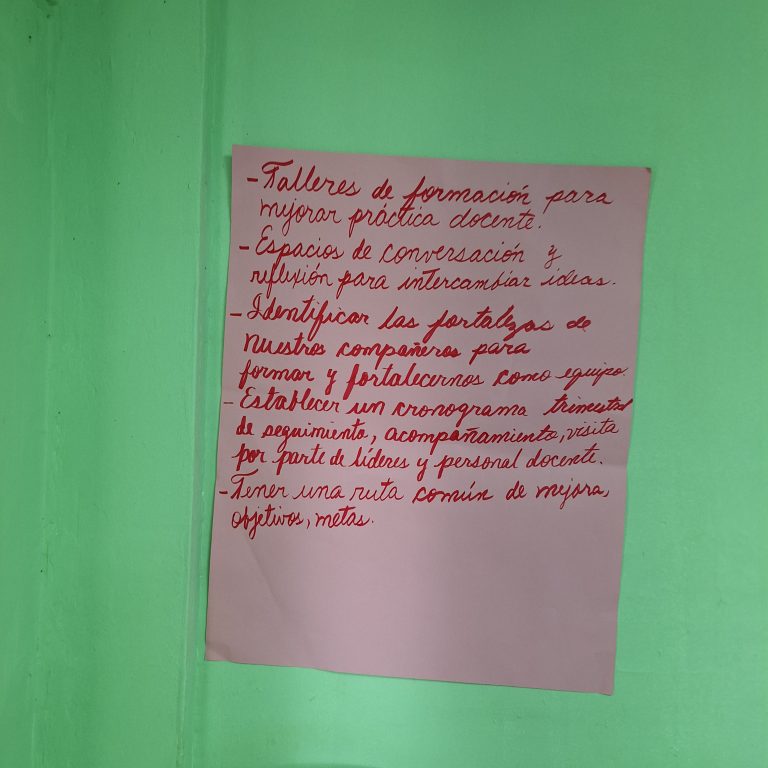 - Talleres de formación para
mejorar práctica docente.
- Espacios de conversación y
reflexión para intercambiar ideas.
- Identificar las fortalezas de
nuestros compañeros para
formar y fortalecernos como equipo.
- Establecer un cronograma trimestral
de seguimiento, acompañamiento, visita
por parte de líderes y personal docente.
- Tener una ruta común de mejora,
objetivos, metas.